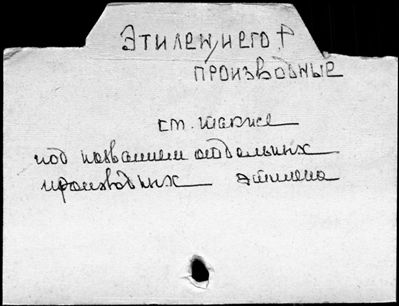 Этилен и его
производные
см. также
под названием отдельных
производных этилена